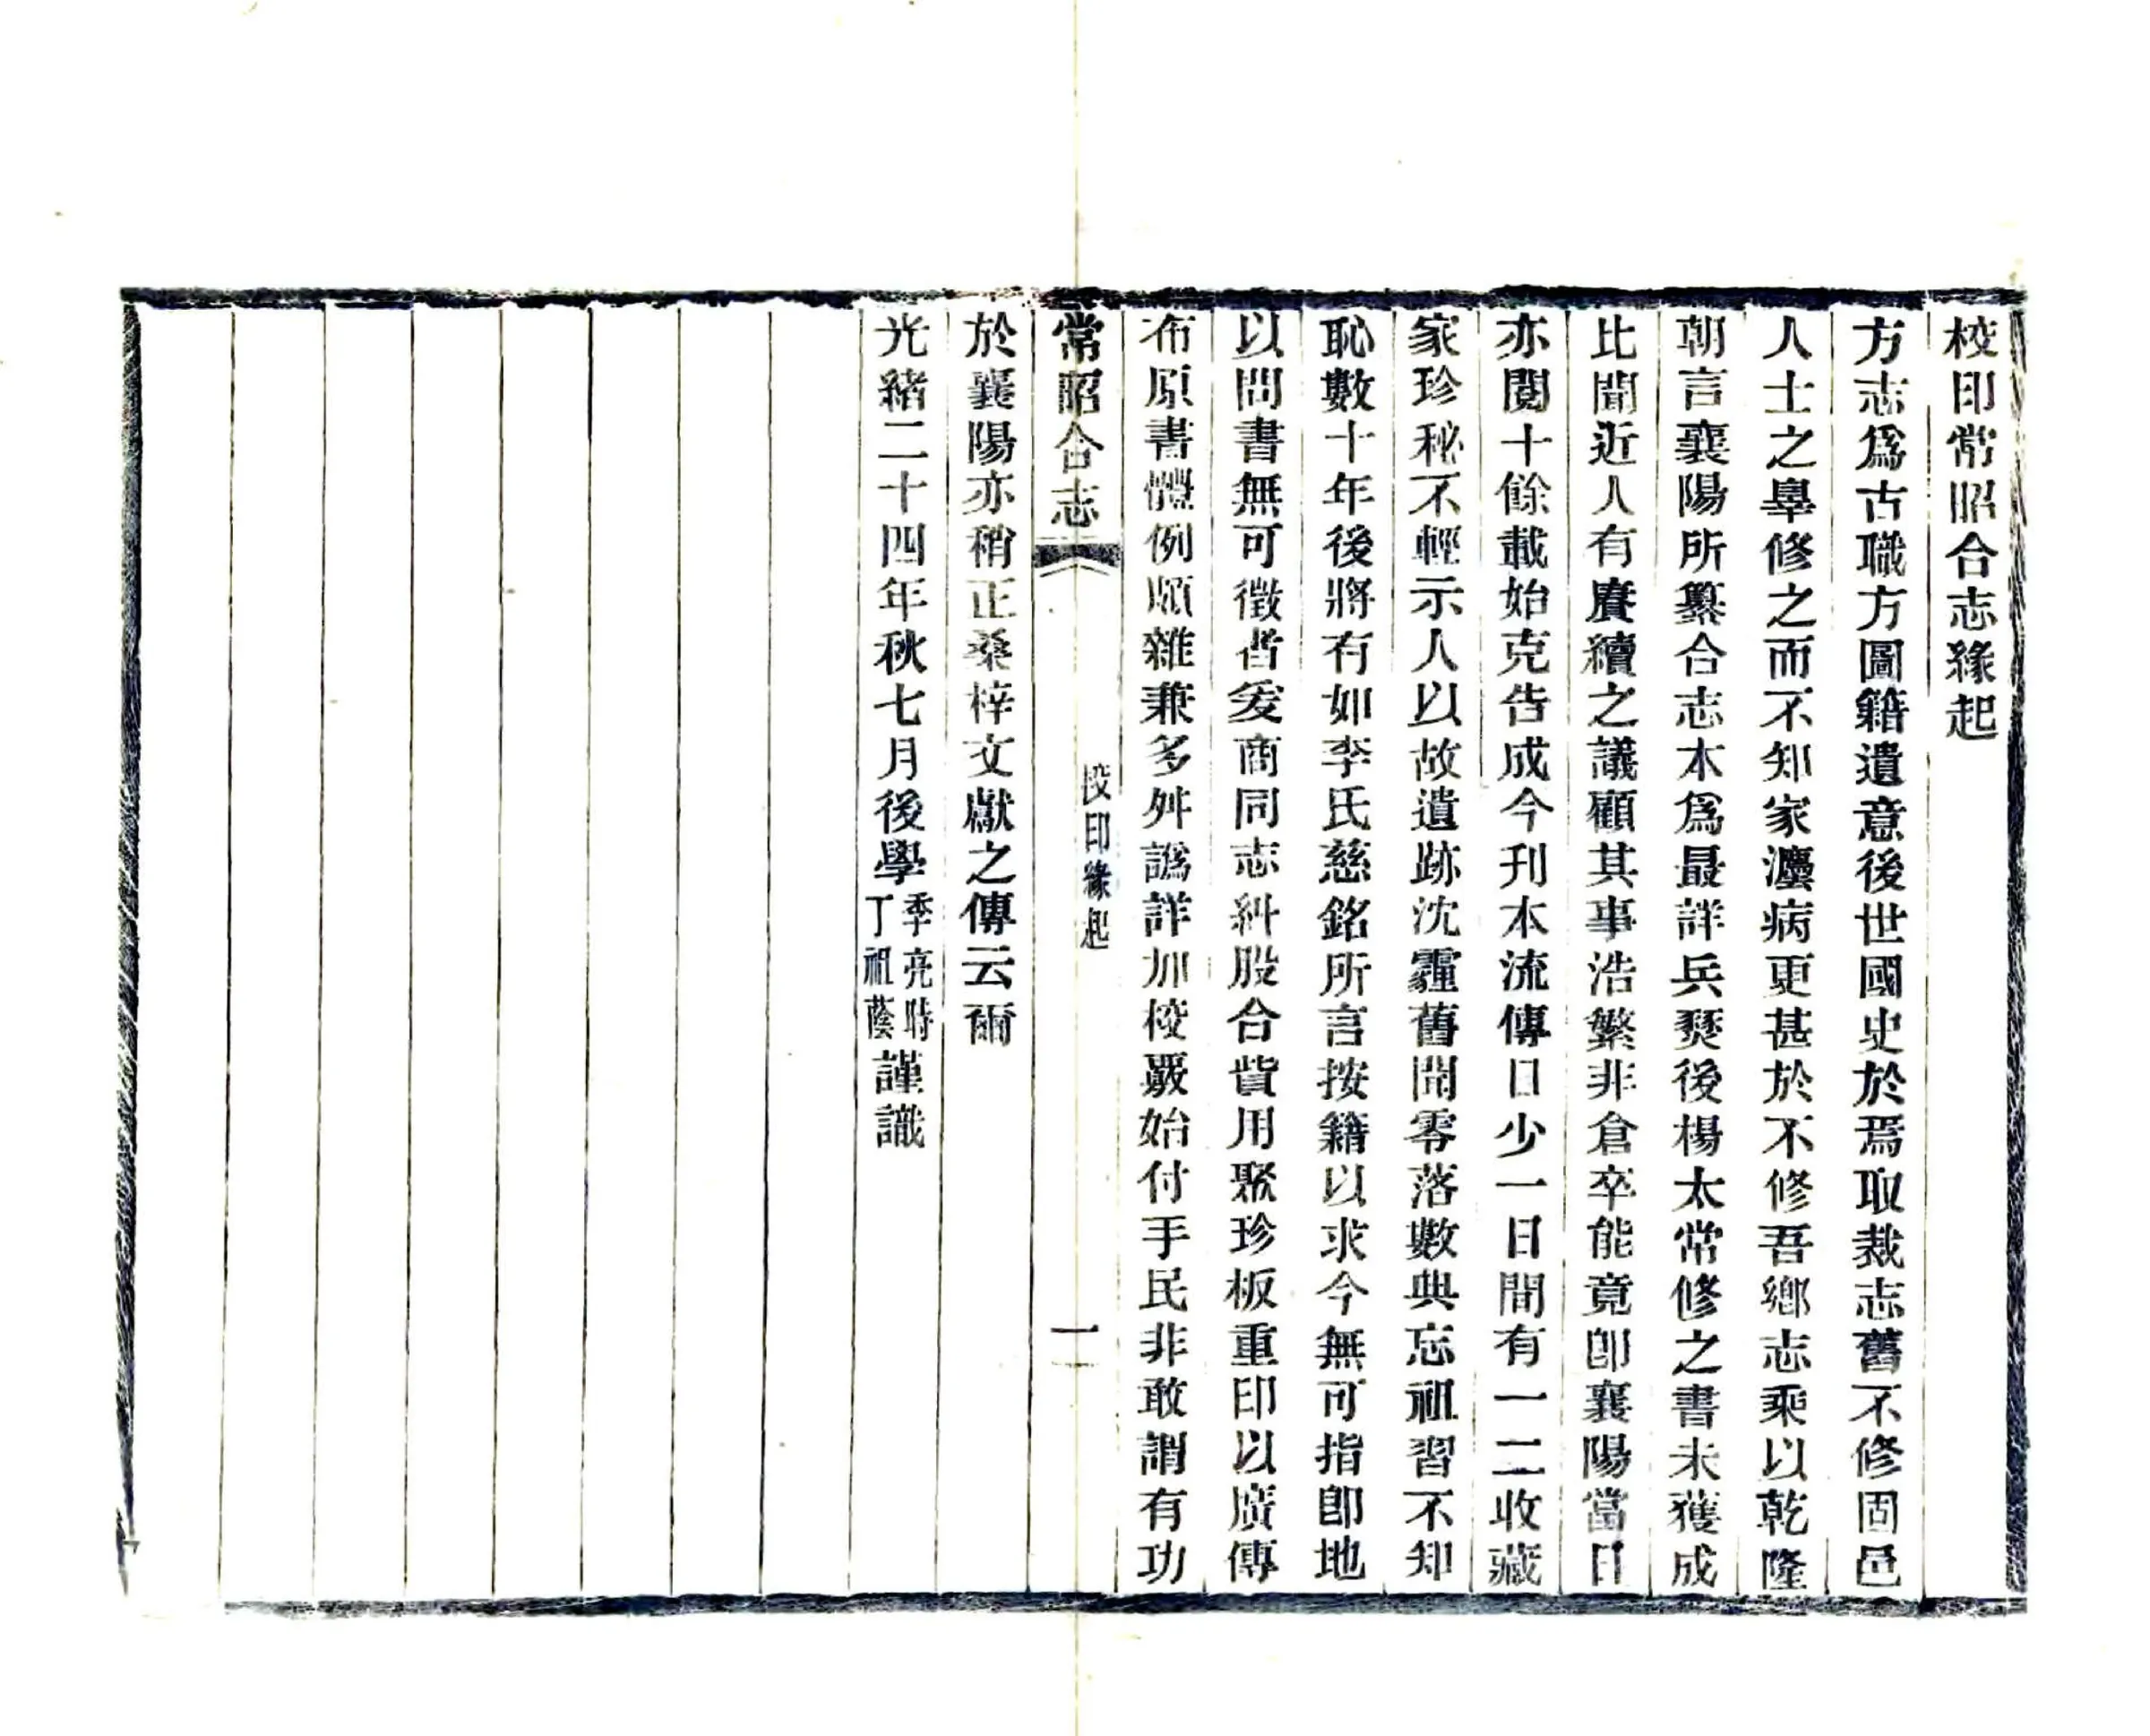 校印常昭合志緣起
方志爲古職方圖籍遺意後世國史於焉取裁志舊不修固邑
人士之辠修之而不知家灋病更甚於不修吾鄉志乘以乾隆
朝言襄陽所纂合志本爲最詳兵燹後楊太常修之書未獲成
比聞近人有賡續之議顧其事浩繁非倉卒能竟卽襄陽當日
亦閱十餘載始克告成今刋本流傳日少一日間有一二收藏
家珍秘不輕示人以故遺跡沈霾舊聞零落數典忘祖習不知
恥數十年後將有如李氏慈銘所言按籍以求今無可指卽地
以問書無可徵者爰商同志糾股合貲用聚珍板重印以廣傳
布原書體例頗雜兼多舛譌詳加校覈始付手民非敢謂有功
常昭合志
校印緣起
一
於襄陽亦稍正桑梓文獻之傳云爾
光緒二十四年秋七月後學季亮時丁祖蔭謹識